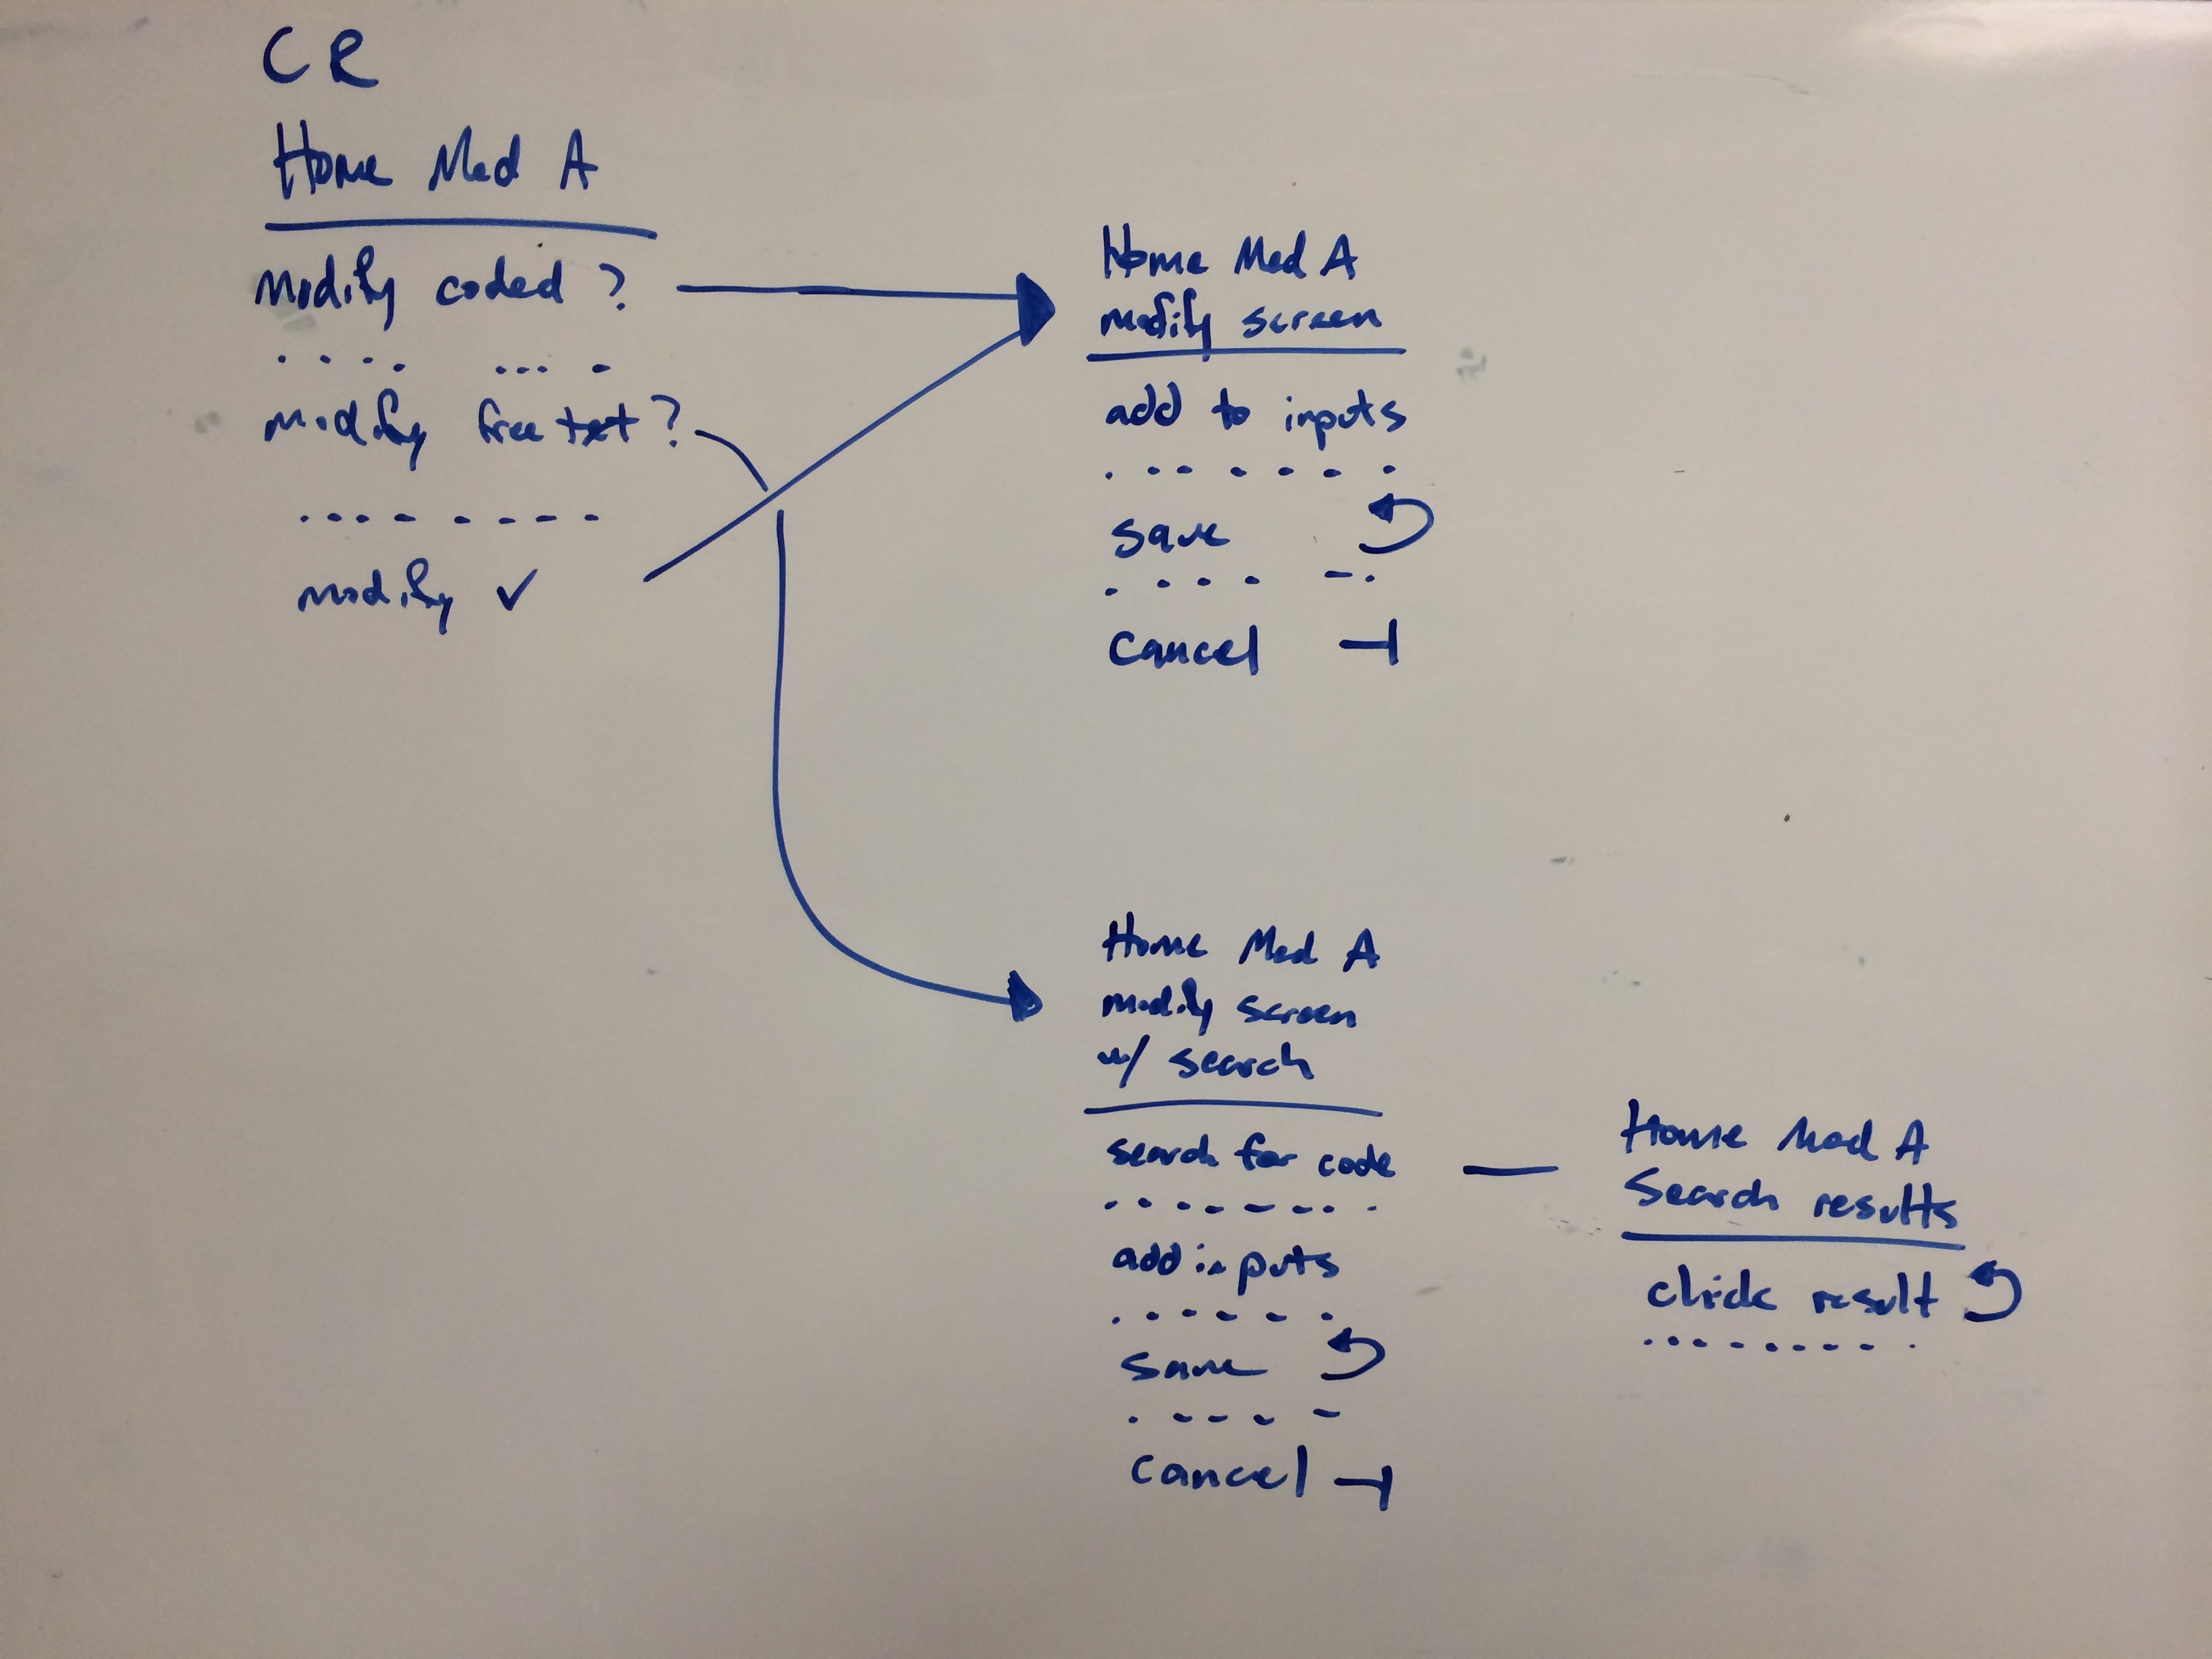 CR
Home Med A
Modify coded ?
modify free txt ?
modify ✓
Home Med A
modify screen
add to inputs
save
cancel
Home Med A
modify screen
w/ search
search for code
add inputs
save
cancel
Home Med A
Search results
click result